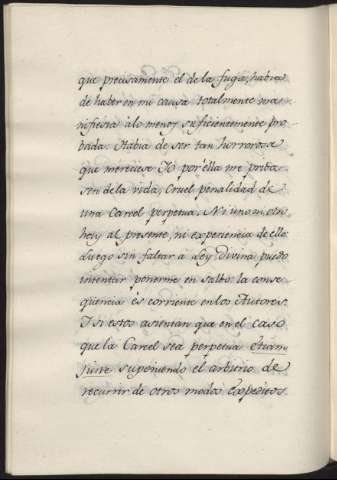 que precisamente el de la fuga, habrá
de haber en mi causa totalmente ma-
nifiesta á lo menos suficientemente pro
bada: Habia de ser tan horrorosa
que mereciese Yo por ella me priba
sen de la vida, Cruel penalidad de
una Carcel perpetua. Ni uno, ni otro
hay al presente, ni experiencia de ello:
Luego sin faltar a Ley Divina puedo
intentar ponerme en salbo: la conse
qüencia és corriente en los Autores.
Y si estos asientan que en el caso
que la Carcel sea perpetua Etiam
jure suponiendo el arbitrio de
recurrir de otros modos Expeditos